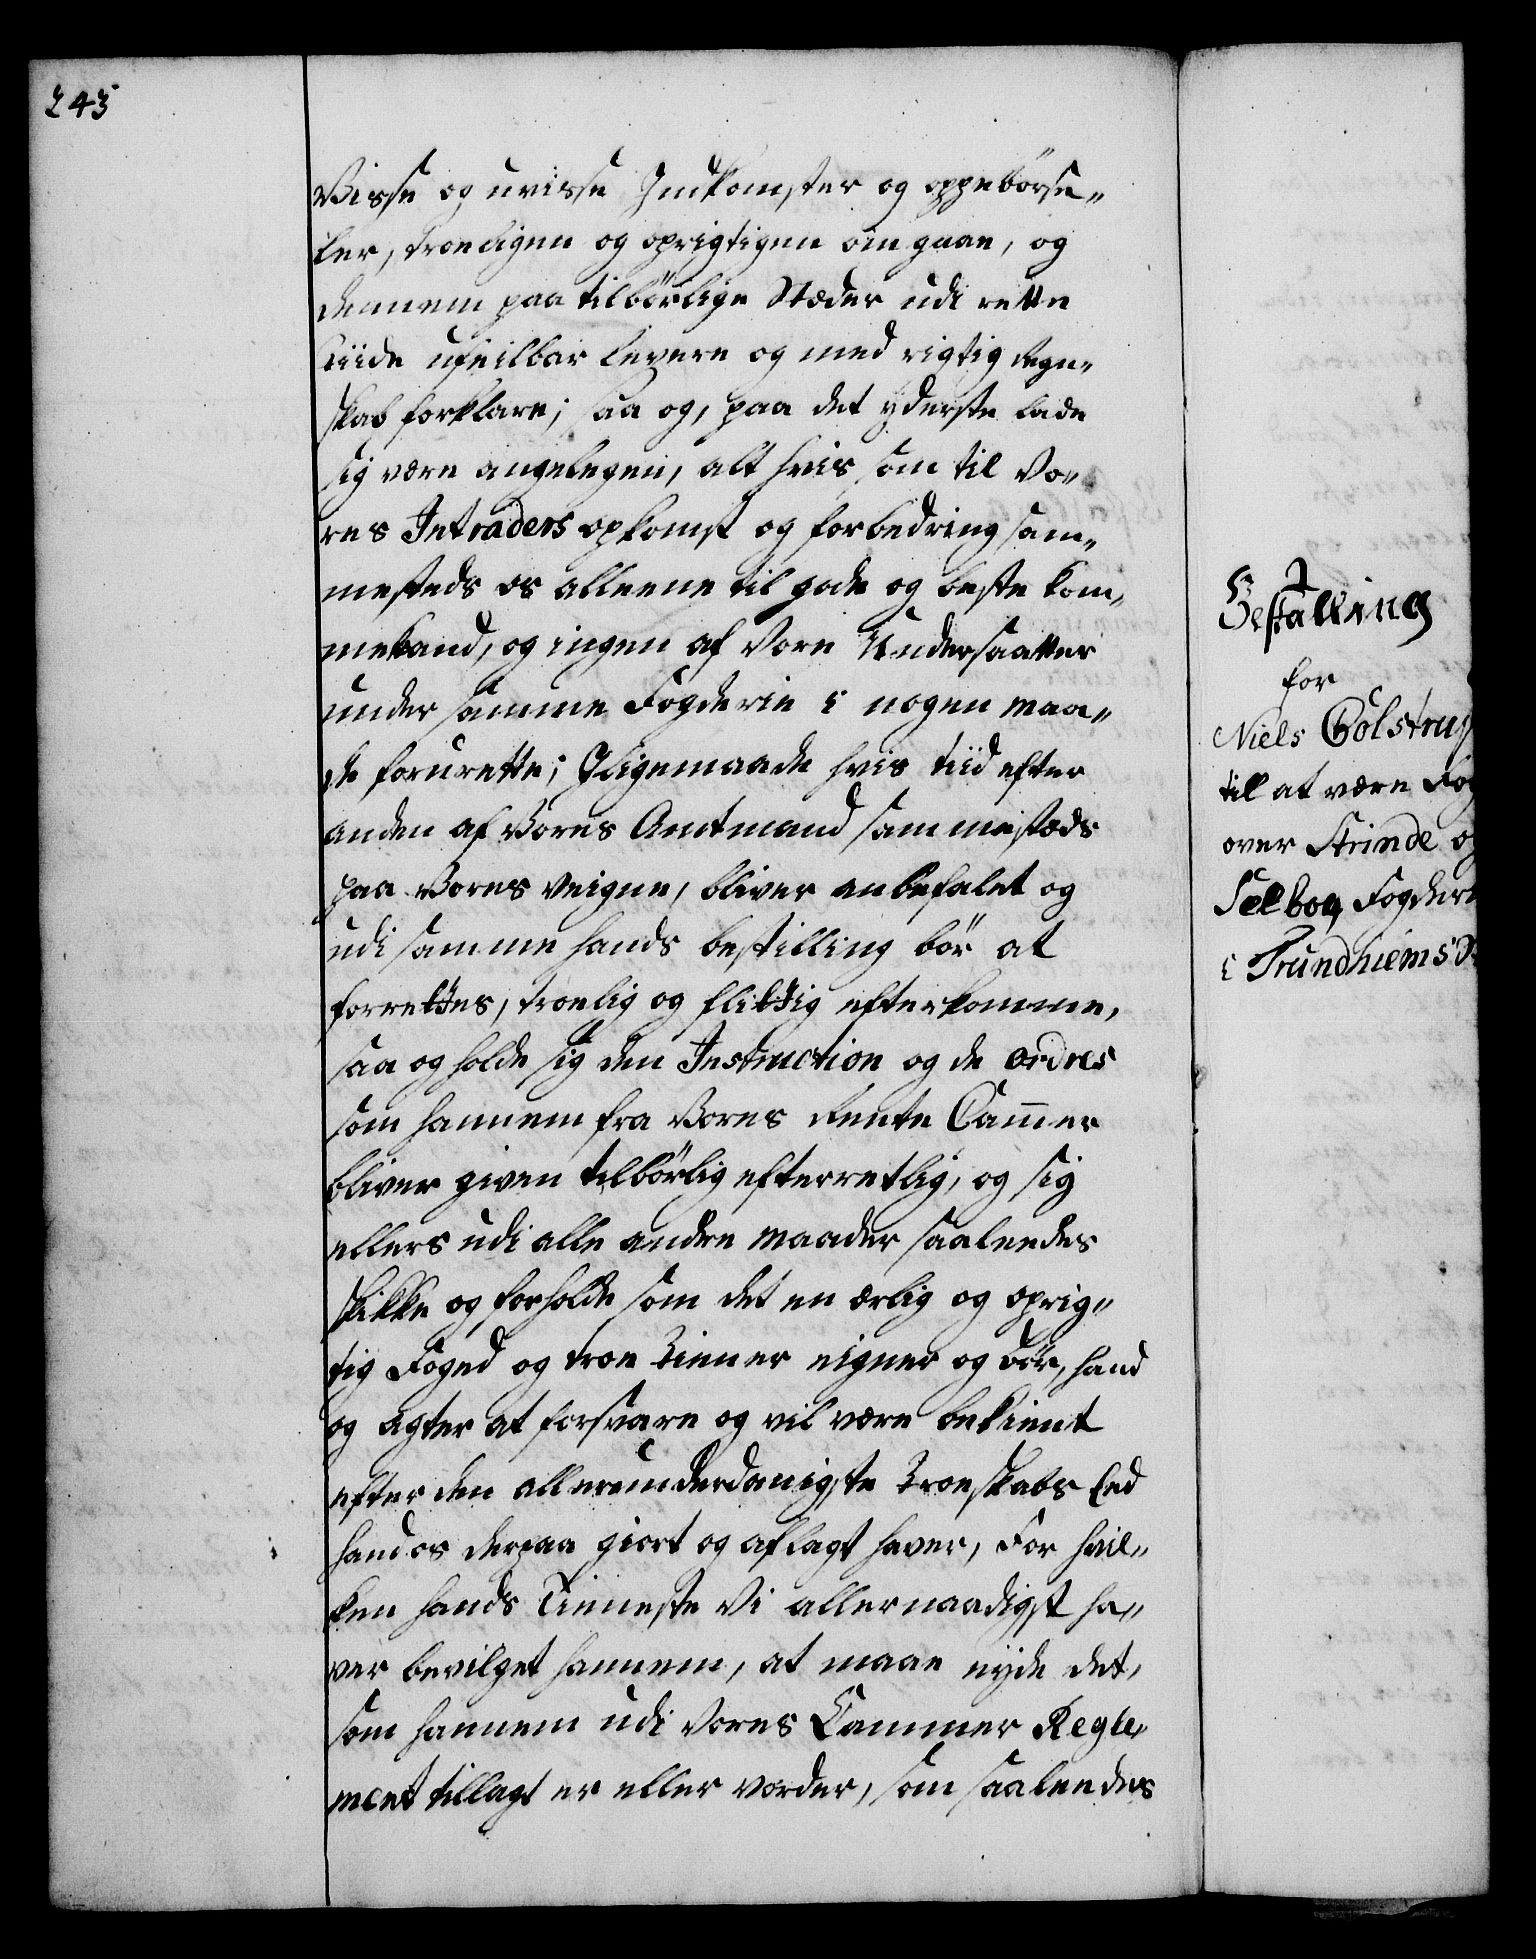 243
Visse og uvisse Indkomster og oppebörse„
ler, troeligen og oprigtigen omgaae, og
dennem paa tilbörlige Stæder udi rette
Tiide ufeilbar levere og med rigtig Regn„
skab forklare; saa og, paa det yderste lade
sig være angelegen, alt hvis som til Vo„
res Intraders opkomst og forbedring sam„
mesteds os alleene til gode og beste kom„
me kand, og ingen af Vore Undersaatter
under samme Fogderie i nogen maa„
de forurette; Iligemaade hvis tiid efter
anden af Vores Amtmand sammestæds
paa Vores Veigne, bliver anbefalet og
udi samme hands bestilling bör at
forrettes, troelig og flittig efterkomme,
saa og holde sig den Instruction og de ordres
som hannem fra Vores Rente Cam̄er
bliver given tilbörlig efterretlig, og sig
ellers udi alle andre maader saaleedes
skikke og forholde som det en ærlig og oprig„
tig Foged og troe Tienner eigner og bör, hand
og agter at forsvare og vil være bekient
efter den allerunderdanigste Troeskabs Eed
hand os derpaa giort og aflagt haver, For hvil„
ken hands Tienneste Vi allernaadigst ha„
ver bevilget hannem, at maae nyde det,
som hannem udi Vores Cammer Regle„
ment tillagt er eller vorder, som saaleedes
Bestalling
for
Niels Colstrup
till at være Fog
over Strinde og
Selboe Fogderi
i Trundhiems